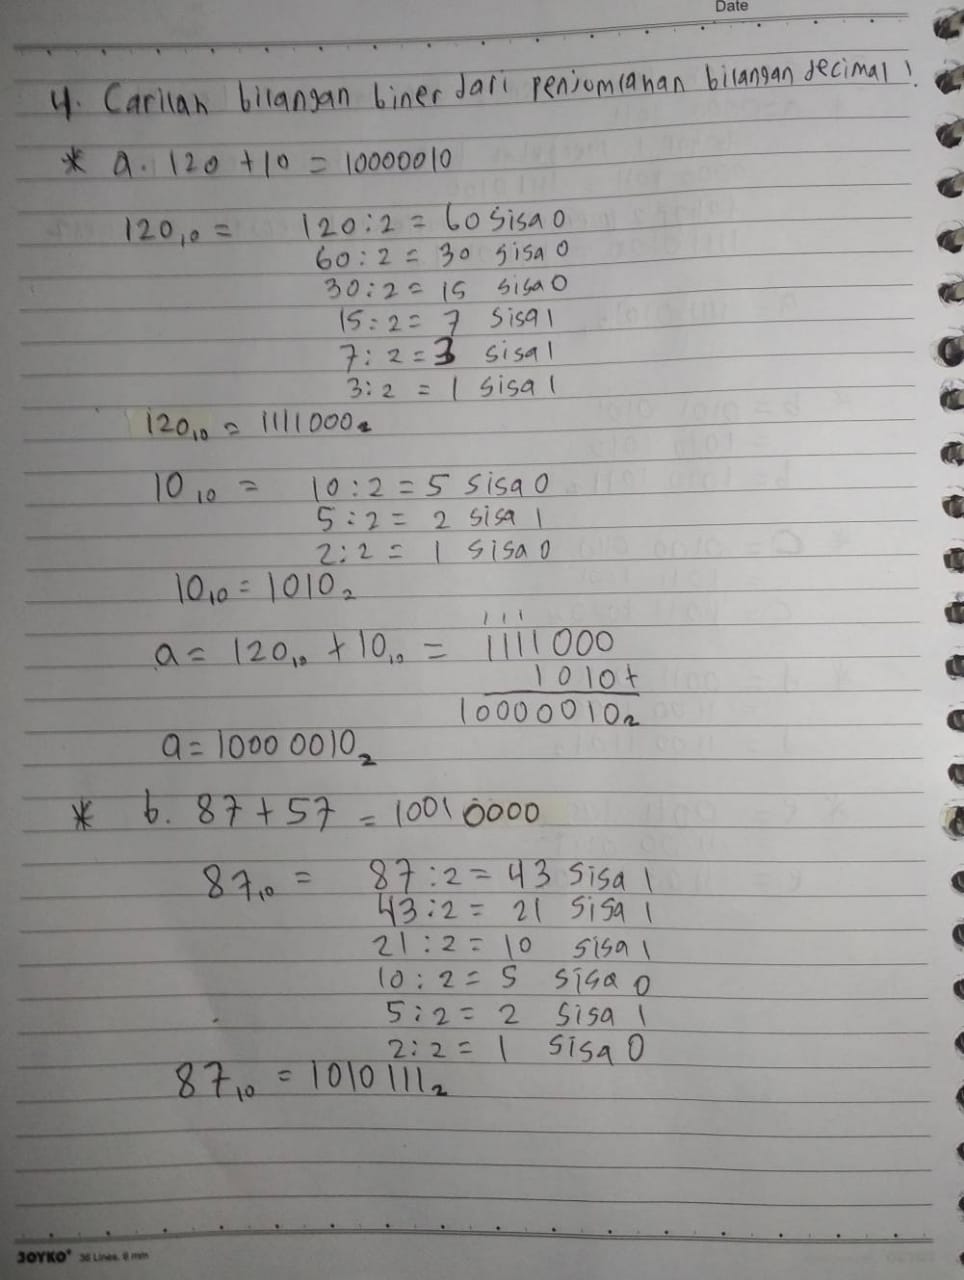 Date
4. Carilah bilangan biner dari penjumlahan bilangan decimal !
* a. 120 + 10 = 10000010
120₁₀ = 120 : 2 = 60 sisa 0
60 : 2 = 30 sisa 0
30 : 2 = 15 sisa 0
15 : 2 = 7 sisa 1
7 : 2 = 3 sisa 1
3 : 2 = 1 sisa 1
120₁₀ = 1111000₂
10₁₀ = 10 : 2 = 5 sisa 0
5 : 2 = 2 sisa 1
2 : 2 = 1 sisa 0
10₁₀ = 1010₂
1 1 1
a = 120₁₀ + 10₁₀ = 1111000
1010 +
10000010₂
a = 1000 0010₂
* b. 87 + 57 = 10010000
87₁₀ = 87 : 2 = 43 sisa 1
43 : 2 = 21 sisa 1
21 : 2 = 10 sisa 1
10 : 2 = 5 sisa 0
5 : 2 = 2 sisa 1
2 : 2 = 1 sisa 0
87₁₀ = 1010111₂
JOYKO 36 Lines, 8 mm